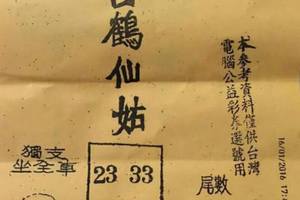 本參考資料僅供台灣
電腦公益彩券選號用
白鶴仙姑
獨支
坐全車
23 33
尾數
16/01/2016 17:4